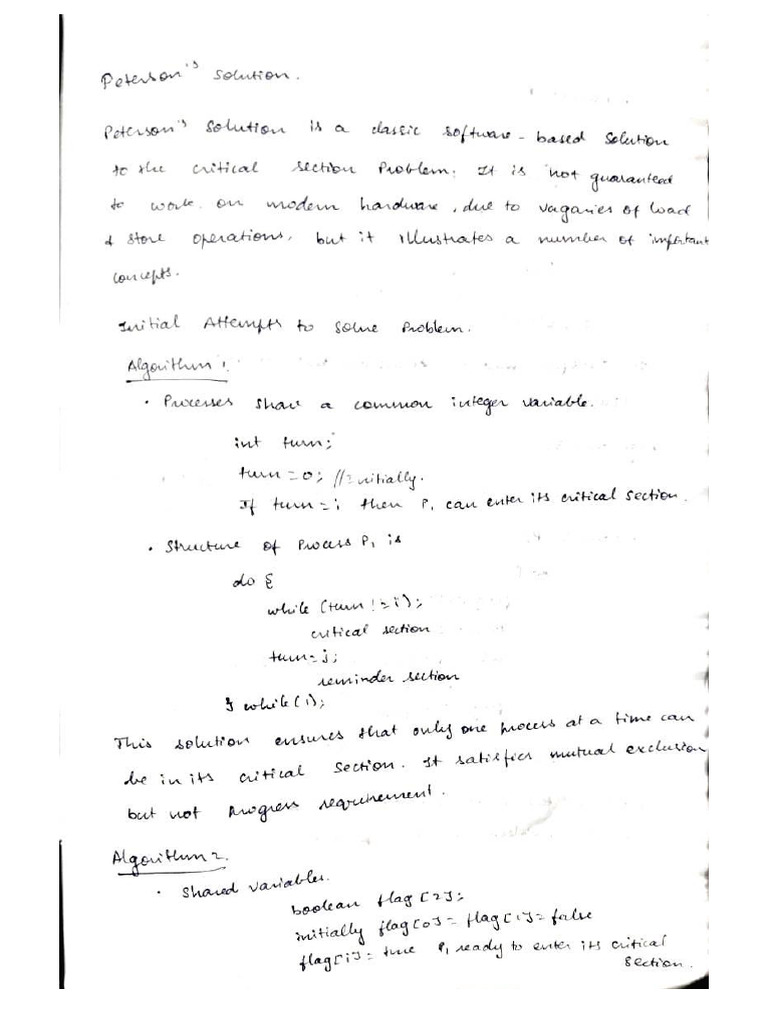 Peterson's Solution.
Peterson's Solution is a classic software-based solution
to the critical section Problem. It is not guaranteed
to work on modern hardware, due to vagaries of load
& store operations, but it illustrates a number of important
concepts.
Initial Attempts to Solve Problem.
Algorithm 1.
• Processes share a common integer variable.
int turn;
turn=0; //Initially.
If turn=i then Pi can enter its critical section.
• Structure of Process Pi is
do {
while (turn!=i);
critical section
turn=j;
reminder section
} while(1);
This solution ensures that only one process at a time can
be in its critical section. It satisfies mutual exclusion
but not progress requirement.
Algorithm 2.
• Shared variables.
boolean flag[2];
initially flag[0]=flag[1]=false
flag[i]=true Pi ready to enter its critical
section.